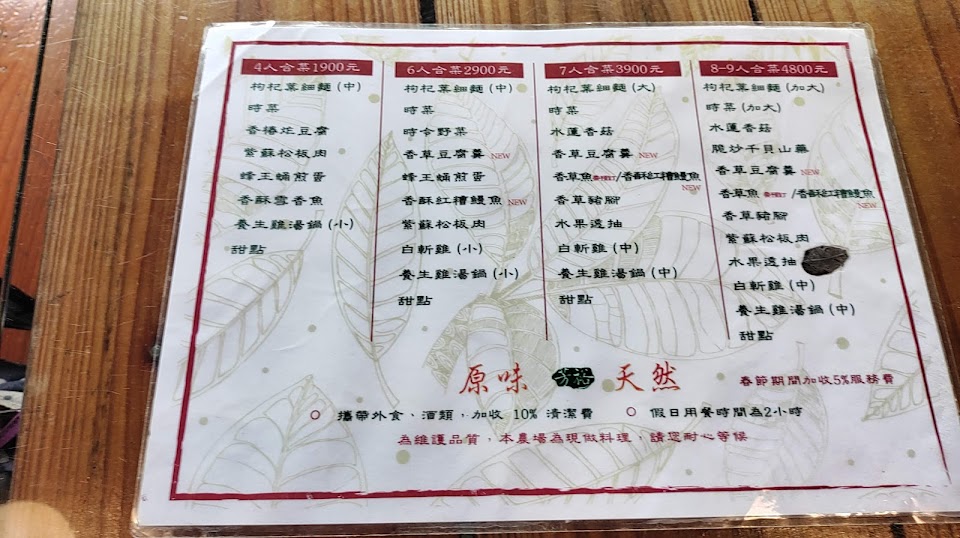 4人合菜1900元
枸杞葉細麵(中)
時菜
香椿炸豆腐
紫蘇松板肉
蜂王蛹煎蛋
香酥雪香魚
養生雞湯鍋(小)
甜點
6人合菜2900元
枸杞葉細麵(中)
時菜
時令野菜
香草豆腐羹 NEW
蜂王蛹煎蛋
香酥紅糟鰻魚 NEW
紫蘇松板肉
白斬雞(小)
養生雞湯鍋(小)
甜點
7人合菜3900元
枸杞葉細麵(大)
時菜
水蓮香菇
香草豆腐羹 NEW
香草魚/香酥紅糟鰻魚
NEW
香草豬腳
水果透抽
白斬雞(中)
養生雞湯鍋(中)
甜點
8-9人合菜4800元
枸杞葉細麵(加大)
時菜(加大)
水蓮香菇
脆炒干貝山藥
香草豆腐羹 NEW
香草魚/香酥紅糟鰻魚
NEW
香草豬腳
紫蘇松板肉
水果透抽
白斬雞(中)
養生雞湯鍋(中)
甜點
原味 天然
春節期間加收5%服務費
攜帶外食、酒類,加收 10% 清潔費 假日用餐時間為2小時
為維護品質,本農場為現做料理,請您耐心等候